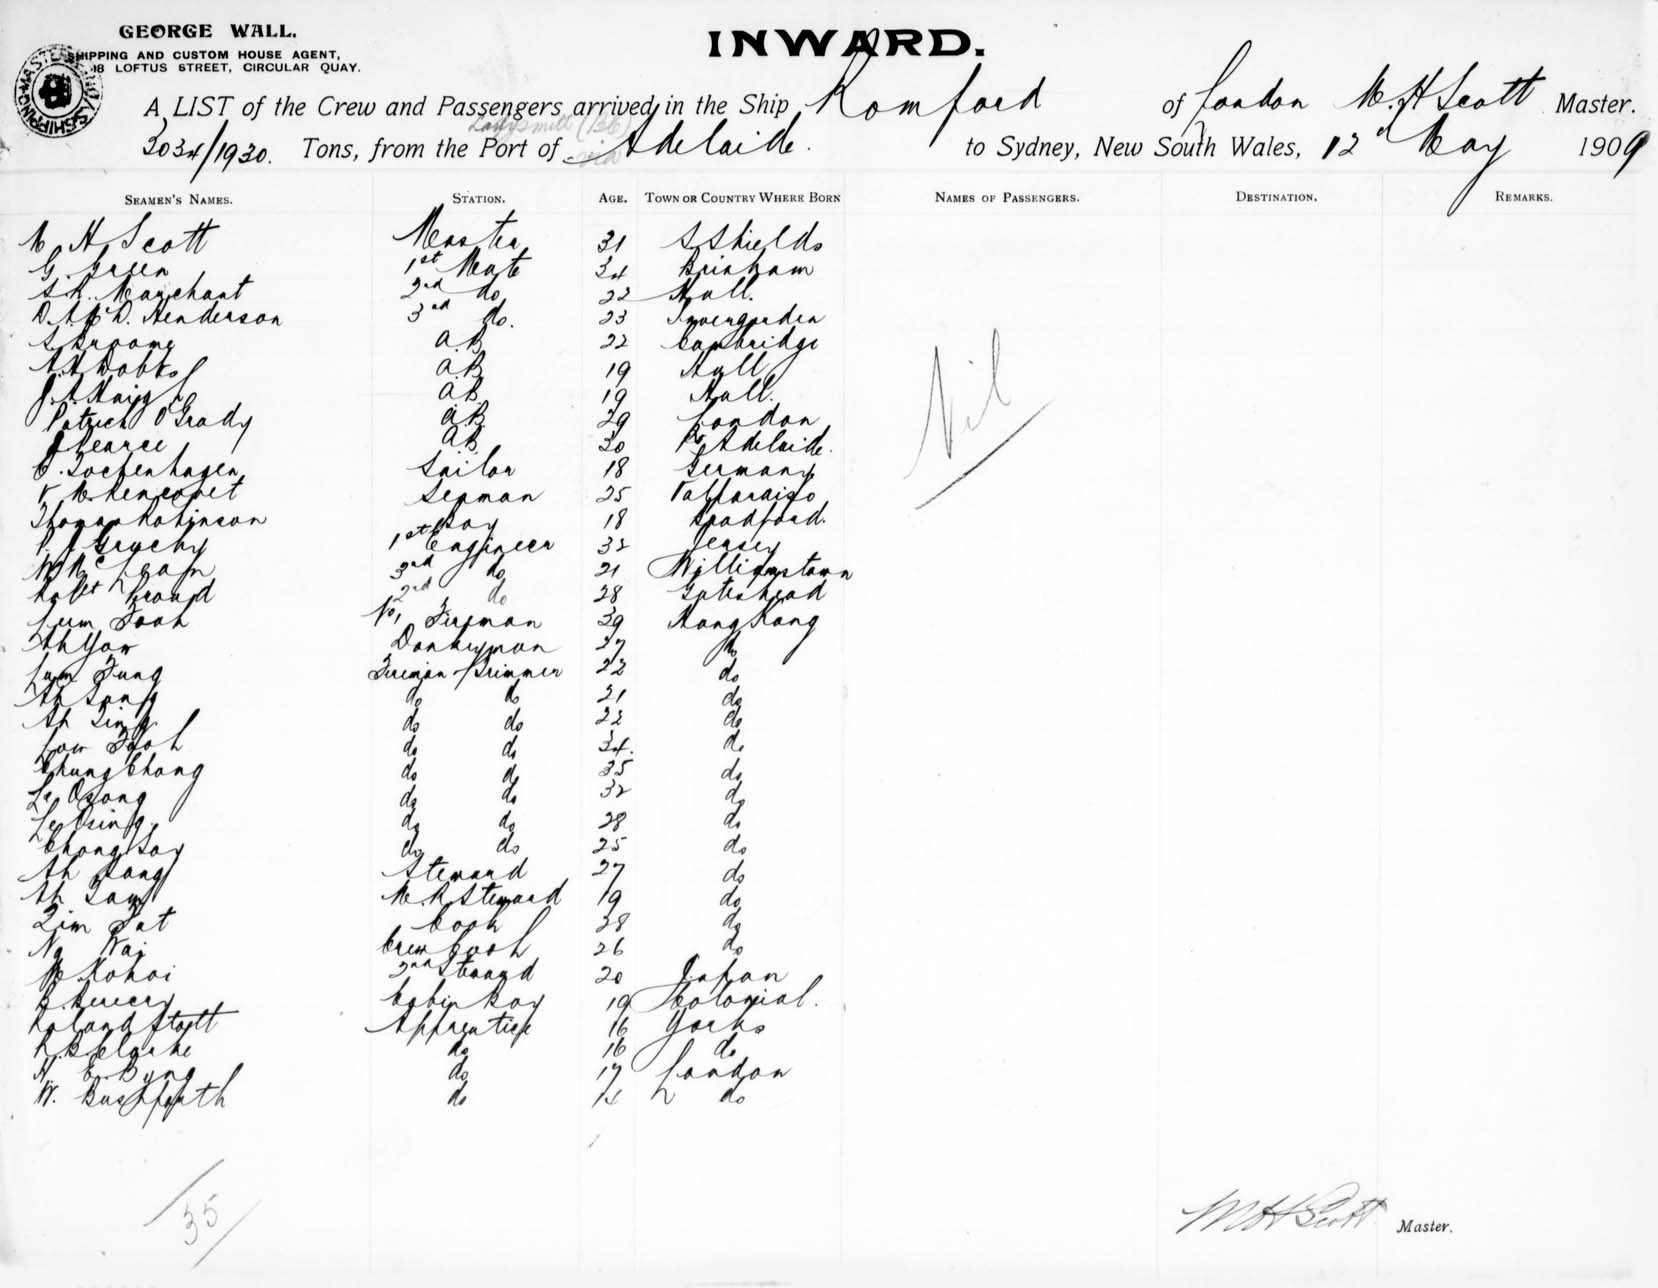 GEORGE WALL.
SHIPPING AND CUSTOM HOUSE AGENT,
18 LOFTUS STREET, CIRCULAR QUAY.
INWARD.
A LIST of the Crew and Passengers arrived in the Ship Romford of London M. H Scott Master.
3034/1930. Tons, from the Port of Ladysmith (Bb) via Adelaide. to Sydney, New South Wales, 12th May 1909
SEAMEN'S NAMES. STATION. AGE. TOWN OR COUNTRY WHERE BORN NAMES OF PASSENGERS. DESTINATION. REMARKS.
M H Scott Master 31 S Shields
G. Green 1st Mate 34 Brixham
Marchant 2nd do 22 Hull.
Henderson 3rd do. 23 Invergordon
S Broome A.B 22 Cambridge
A.H Dobbs A.B 19 Hull
A.B 19 Hull.
Patrick O'Grady A.B 29 London
J Pearce A.B 30 Pt Adelaide.
Sailor 18 Germany
Seaman 25 Valparaiso
Thomas Robinson Boy 18 Bradford.
Gruchy 1st Engineer 32 Jersey
3rd do 21 Williamstown
Robt 2nd do 28 Gateshead
Lum Fook No 1 Fireman 39 Hong Kong
Ah Yow Donkeyman 27 do
Lum Fung Fireman /Trimmer 22 do
Ah Sang do do 21 do
Ah Ting do do 22 do
Low Fook do do 34. do
Chung Chong do do 35 do
do do 32 do
do do 28 do
Chong Soy do do 25 do
Ah Sang Steward 27 do
Ah Sam M.R Steward 19 do
Lim Fat Cook 38 do
Ng Wai Crew Cook 26 do
M. Kohai 2nd Steward 20 Japan
Cabin Boy 19 Colonial.
Roland Stott Apprentice 16 Yorks
R.B Clarke do 16 do
H E Byng do 17 London
W. Bushforth do do
Nil
35
M H Scott Master.